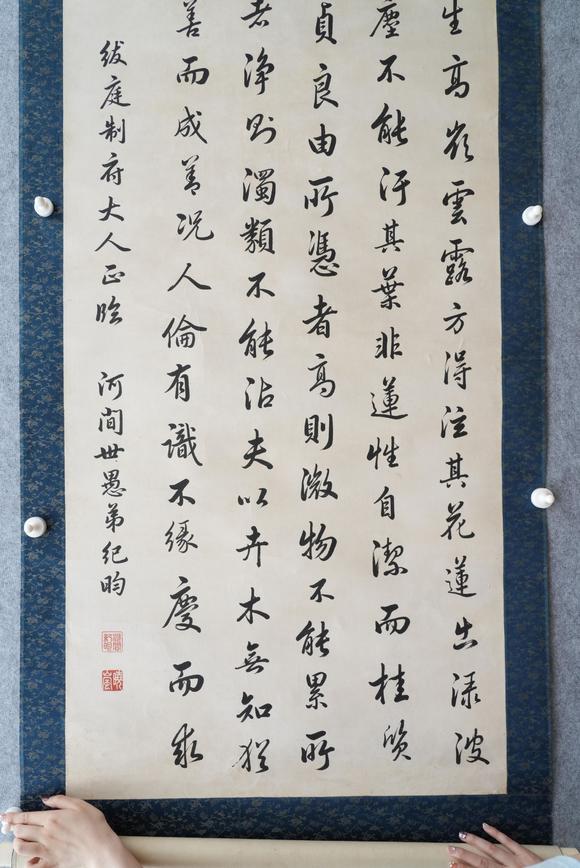 生高嶺雲露方得注其花蓮出淥波
塵不能汙其葉非蓮性自潔而桂質
貞良由所憑者高則微物不能累所
者淨則濁類不能沾夫以卉木無知猶
善而成善況人倫有識不緣慶而求
紱庭制府大人正臨 河間世愚弟紀昀